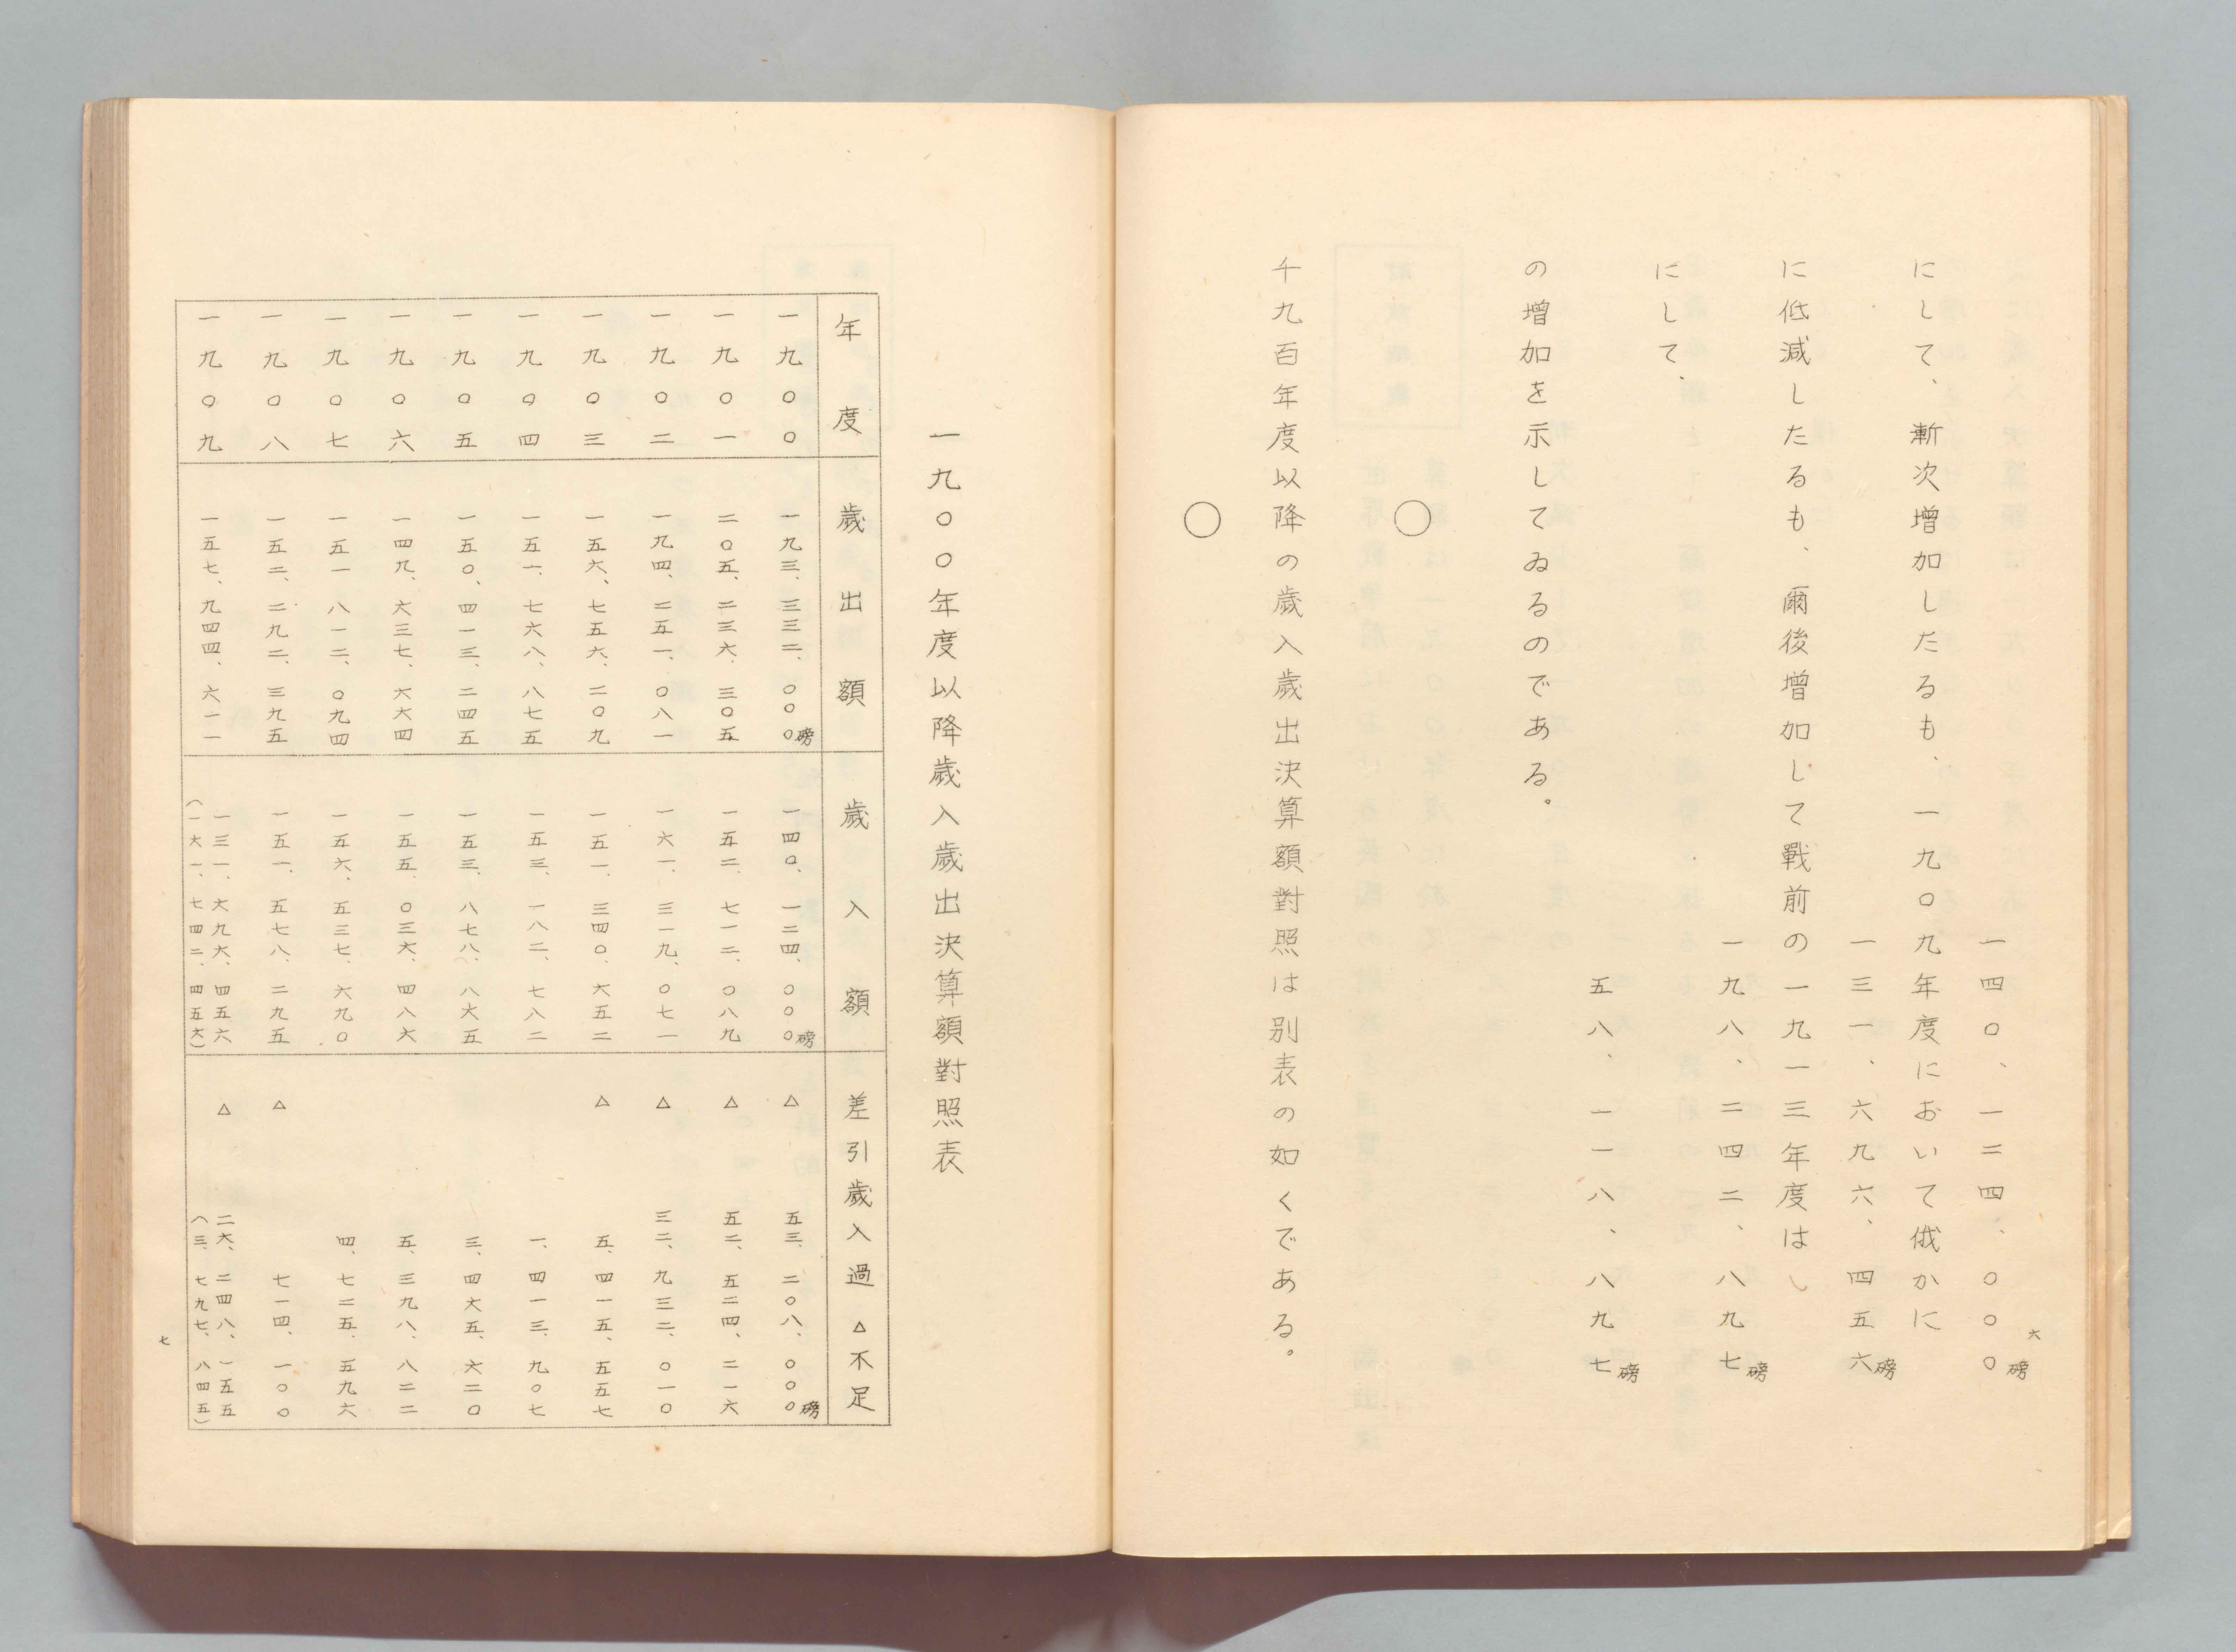 六
一四〇、一二四、〇〇〇磅
にして、漸次増加したるも、一九〇九年度において俄かに
一三一、六九六、四五六磅
に低減したるも、爾後増加して戰前の一九一三年度は
一九八、二四二、八九七磅
にして、
五八、一一八、八九七磅
の増加を示してゐるのである。
○
千九百年度以降の歳入歳出決算額對照は別表の如くである。
○
一九〇〇年度以降歳入歳出決算額對照表
年度 歳出額 歳入額 差引歳入過△不足
一九〇〇 一九三、三三二、〇〇〇磅 一四〇、一二四、〇〇〇磅 △ 五三、二〇八、〇〇〇磅
一九〇一 二〇五、二三六、三〇五 一五二、七一二、〇八九 △ 五二、五二四、二一六
一九〇二 一九四、二五一、〇八一 一六一、三一九、〇七一 △ 三二、九三二、〇一〇
一九〇三 一五六、七五六、二〇九 一五一、三四〇、六五二 △ 五、四一五、五五七
一九〇四 一五一、七六八、八七五 一五三、一八二、七八二 一、四一三、九〇七
一九〇五 一五〇、四一三、二四五 一五三、八七八、八六五 三、四六五、六二〇
一九〇六 一四九、六三七、六六四 一五五、〇三六、四八六 五、三九八、八二二
一九〇七 一五一、八一二、〇九四 一五六、五三七、六九〇 四、七二五、五九六
一九〇八 一五二、二九二、三九五 一五一、五七八、二九五 △ 七一四、一〇〇
一九〇九 一五七、九四四、六一一 一三一、六九六、四五六 △ 二六、二四八、一五五
(一六一、七四二、四五六) (三、七九七、八四五)
七